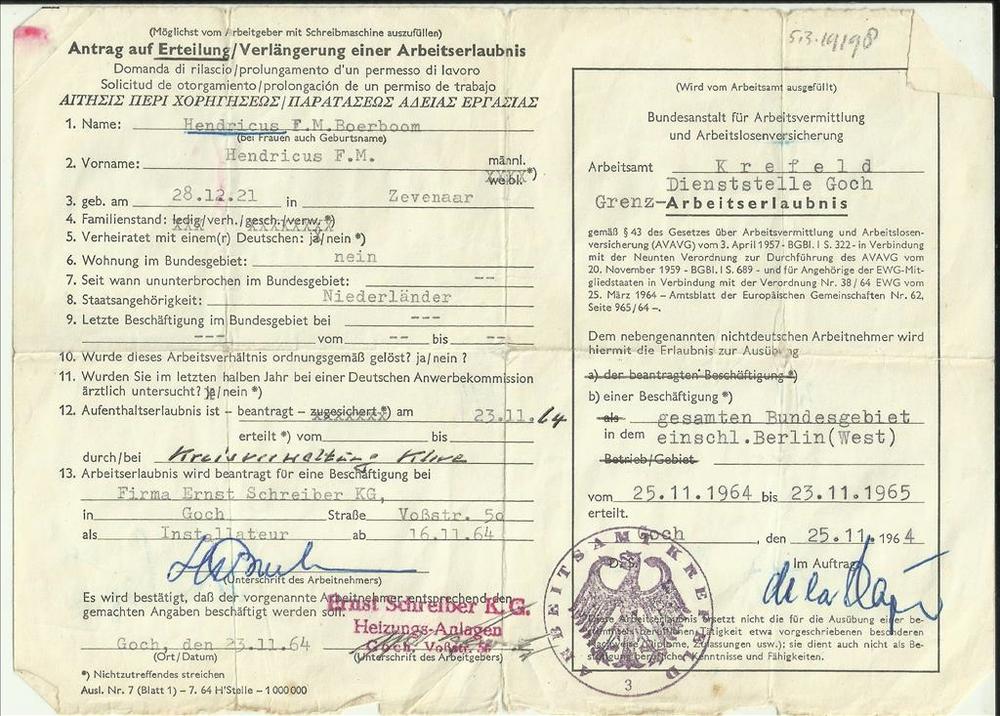 53.19198
(Möglichst vom Arbeitgeber mit Schreibmaschine auszufüllen)
Antrag auf Erteilung/Verlängerung einer Arbeitserlaubnis
Domanda di rilascio/prolungamento d'un permesso di lavoro
Solicitud de otorgamiento/prolongación de un permiso de trabajo
ΑΙΤΗΣΙΣ ΠΕΡΙ ΧΟΡΗΓΗΣΕΩΣ/ΠΑΡΑΤΑΣΕΩΣ ΑΔΕΙΑΣ ΕΡΓΑΣΙΑΣ
1. Name: Hendricus F.M.Boerboom
(bei Frauen auch Geburtsname)
2. Vorname: Hendricus F.M. männl.
weibl. *)
3. geb. am 28.12.21 in Zevenaar
4. Familienstand: ledig/verh./gesch./verw. *)
5. Verheiratet mit einem(r) Deutschen: ja/nein *)
6. Wohnung im Bundesgebiet: nein
7. Seit wann ununterbrochen im Bundesgebiet: --
8. Staatsangehörigkeit: Niederländer
9. Letzte Beschäftigung im Bundesgebiet bei ---
--- vom -- bis --
10. Wurde dieses Arbeitsverhältnis ordnungsgemäß gelöst? ja/nein ?
11. Wurden Sie im letzten halben Jahr bei einer Deutschen Anwerbekommission
ärztlich untersucht? ja/nein *)
12. Aufenthaltserlaubnis ist – beantragt – zugesichert *) am 23.11.64
erteilt *) vom bis
durch/bei Kreisverwaltung Kleve
13. Arbeitserlaubnis wird beantragt für eine Beschäftigung bei
Firma Ernst Schreiber KG,
in Goch Straße Voßstr. 50
als Installateur ab 16.11.64
(Unterschrift des Arbeitnehmers)
Es wird bestätigt, daß der vorgenannte Arbeitnehmer entsprechend den
gemachten Angaben beschäftigt werden soll.
Ernst Schreiber K.G.
Heizungs-Anlagen
Goch, Voßstr.
Goch, den 23.11.64
(Ort/Datum) (Unterschrift des Arbeitgebers)
*) Nichtzutreffendes streichen
Ausl. Nr. 7 (Blatt 1) – 7. 64 H'Stelle – 1 000 000
(Wird vom Arbeitsamt ausgefüllt)
Bundesanstalt für Arbeitsvermittlung
und Arbeitslosenversicherung
Arbeitsamt Krefeld
Dienststelle Goch
Grenz-Arbeitserlaubnis
gemäß § 43 des Gesetzes über Arbeitsvermittlung und Arbeitslosen-
versicherung (AVAVG) vom 3. April 1957 - BGBl. I S. 322 - in Verbindung
mit der Neunten Verordnung zur Durchführung des AVAVG vom
20. November 1959 - BGBl. I S. 689 - und für Angehörige der EWG-Mit-
gliedstaaten in Verbindung mit der Verordnung Nr. 38/64 EWG vom
25. März 1964 – Amtsblatt der Europäischen Gemeinschaften Nr. 62,
Seite 965/64 –.
Dem nebengenannten nichtdeutschen Arbeitnehmer wird
hiermit die Erlaubnis zur Ausübung
a) der beantragten Beschäftigung *)
b) einer Beschäftigung *)
als gesamten Bundesgebiet
in dem einschl.Berlin(West)
Betrieb/Gebiet
vom 25.11.1964 bis 23.11.1965
erteilt.
Goch, den 25.11.1964
Im Auftrag
Diese Arbeitserlaubnis ersetzt nicht die für die Ausübung einer be-
stimmten beruflichen Tätigkeit etwa vorgeschriebenen besonderen
Diplome, Zulassungen usw.); sie dient auch nicht als Be-
stätigung beruflicher Kenntnisse und Fähigkeiten.
ARBEITSAMT KREFELD
3